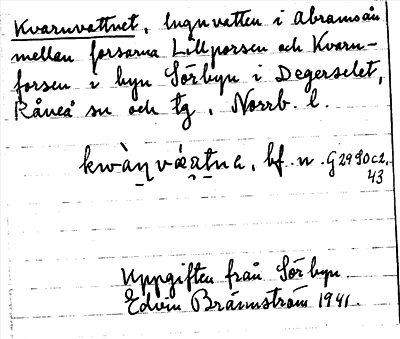 Kvarnvattnet, lugnvatten i Abramsån
mellan forsarna Lillforsen och Kvarn-
forsen i byn Sörbyn i Degerselet,
Råneå sn och tg, Norrb. l.
kwàṉvæatna, bf. n. G29S0c2,
43
Uppgiften från Sörbyn
Edvin Brännström 1941.